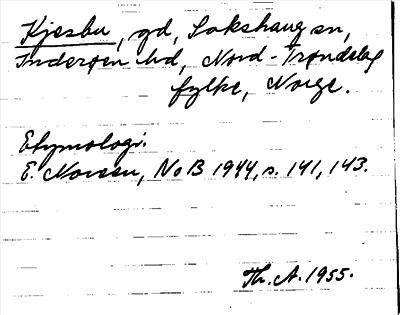 Kjesbu, gd, Sakshaug sn,
Inderøen hd, Nord-Trøndelag
fylke, Norge.
Etymologi.
E. Noreen, NoB 1944, s. 141, 143.
Th. A. 1955.